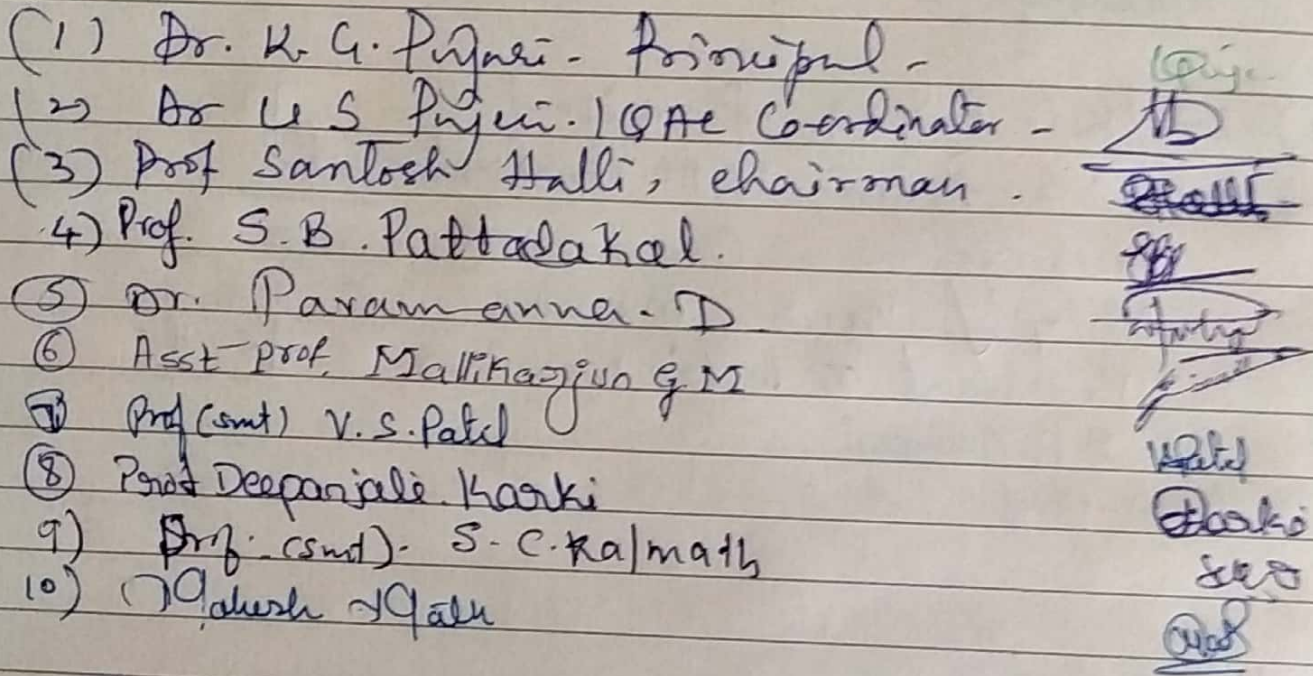 (1) Dr. K. G. Pujari - Principal -
(2) Dr U S Pujari. IQAC Co-ordinator -
(3) Prof Santosh Halli, chairman.
4) Prof. S. B. Pattadakal.
(5) Dr. Paramanna. D
(6) Asst prof. Mallikarjun G M
(7) Prof (smt) V. S. Patil VPatil
(8) Prof Deepanjali Karki DKarki
9) Prof. (smt). S. C. Kalmath
10)